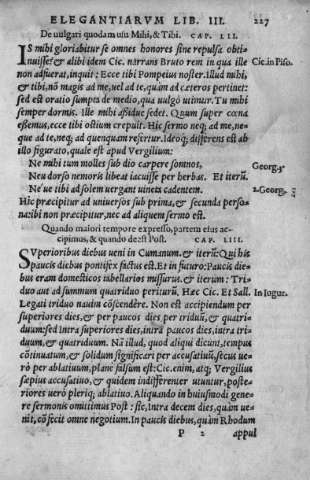 ELEGANTIARVM LIB. III. 227
De uulgari quodam usu Mihi, & Tibi. CAP. LII.
IS mihi gloriabitur se omnes honores sine repulsa obti-
nuisse? & alibi idem Cic. narrans Bruto rem in qua ille Cic.in Piso.
non adfuerat, inquit: Ecce tibi Pompeius noster. Illud mihi,
& tibi, nõ magis ad me, uel ad te, quàm ad cæteros pertinet:
sed est oratio sumpta de medio, qua uulgò utimur. Tu mihi
semper dormis. Ille mihi aßiduè sedet. Quum super cœna
eßemus, ecce tibi ostium crepuit. Hic sermo neq; ad me, ne-
que ad te, neq; ad quenquam refertur. Ideoq; differens est ab
illo figurato, quale est apud Vergilium:
Ne mihi tum molles sub dio carpere somnos, Georg.3.
Neu dorso nemoris libeat iacuisse per herbas. Et iterũ:
Ne'ue tibi ad solem uergant uineta cadentem. 2.Georg.
Hic præcipitur ad uniuersos sub prima, & secunda perso-
na: sibi non præcipitur, nec ad aliquem sermo est.
Quando maiori tempore expresso, partem eius ac-
cipimus, & quando dest Post. CAP. LIII.
SVperioribus diebus ueni in Cumanum. & iterũ: Qui his
paucis diebus pontifex factus est. Et in futuro: Paucis die-
bus eram domesticos tabellarios missurus. & iterum: Tri-
duo aut ad summum quatriduo periturũ. Hæc Cic. Et Sall. In Iugur.
Legati triduo nauim cõscendêre. Non est accipiendum per
superiores dies, & per paucos dies, per triduũ, & quatri-
duum: sed intra superiores dies, intrà paucos dies, intra tri-
duum, & quatriduum. Nã illud, quod aliqui dicunt, tempus
cõtinuatum, & solidum significari per accusatiuũ, secus ue-
rò per ablatiuum, planè falsum est: Cic. enim, atq; Vergilius
sæpius accusatiuo, & quidem indifferenter utuntur, poste-
riores uerò pleriq; ablatiuo. Aliquando in huiusmodi gene-
re sermonis omittimus Post: sic, Intra decem dies, quàm ue-
nit, cõfecit omne negotium. In paucis diebus, quàm Rhodum
P 2 appul